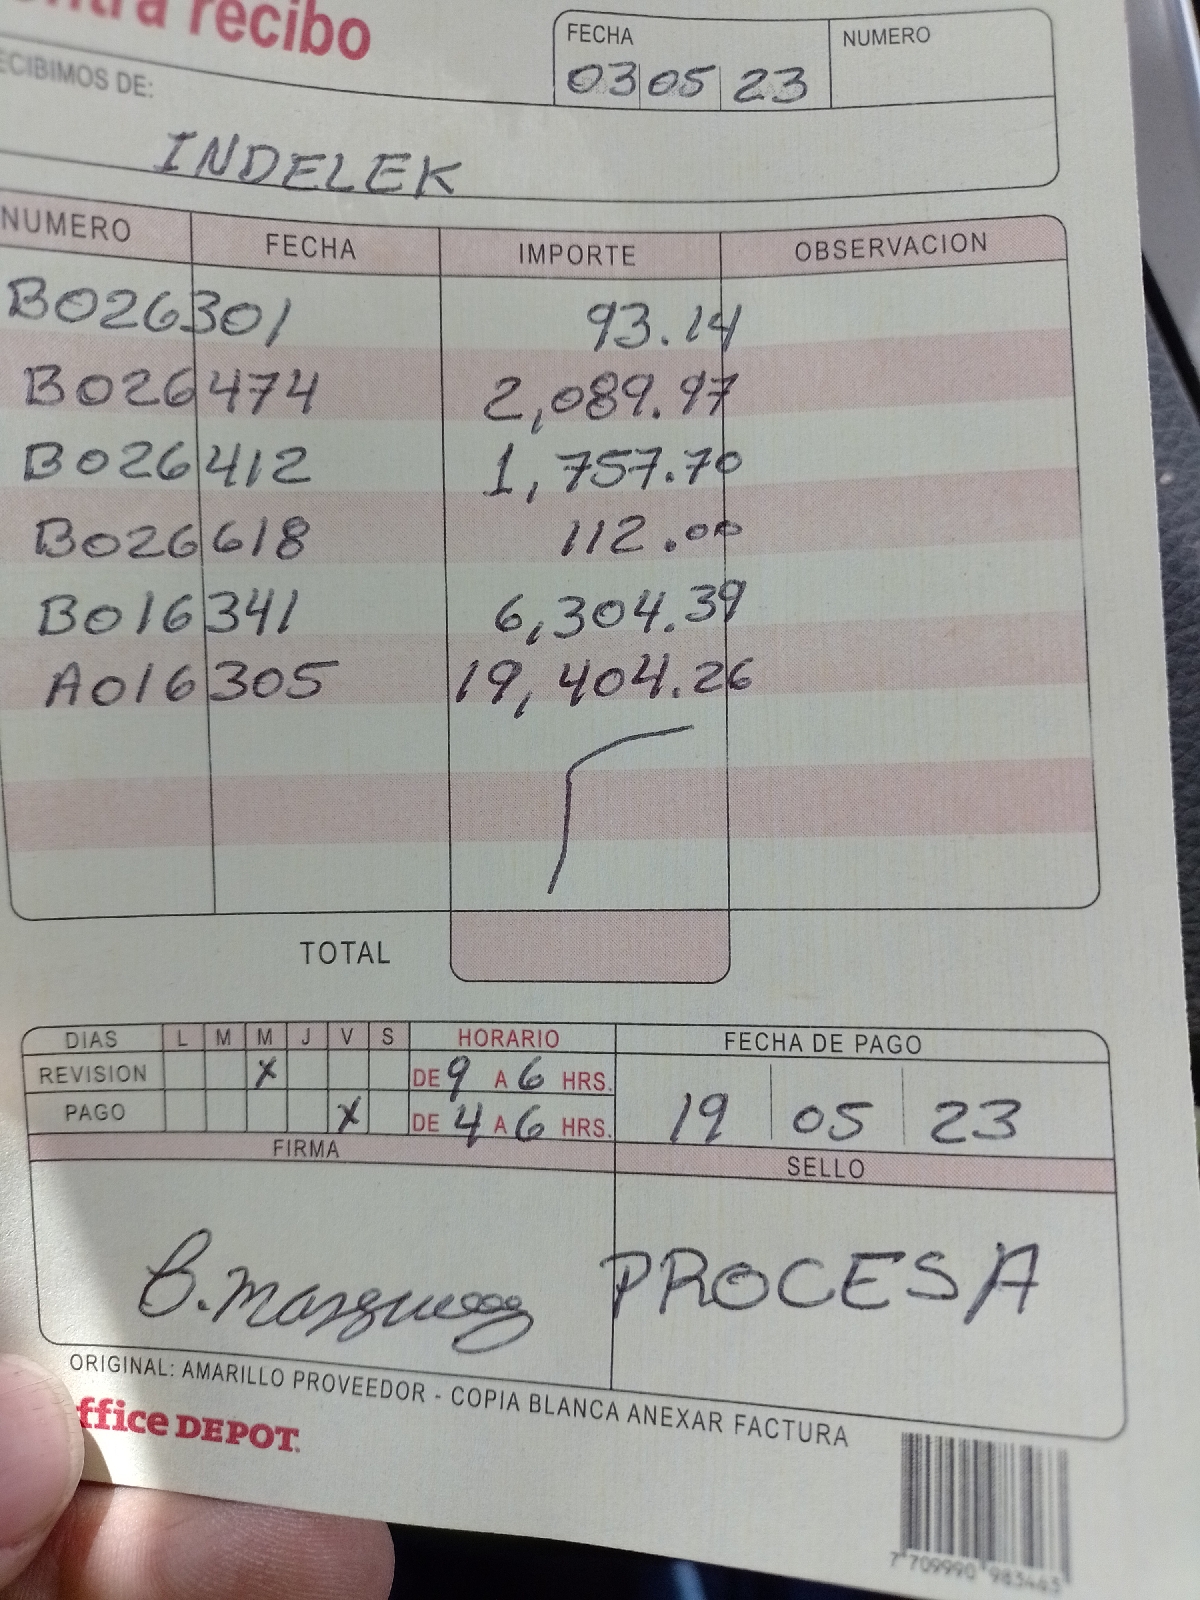 ntra recibo
FECHA NUMERO
03 05 23
ECIBIMOS DE:
INDELEK
NUMERO FECHA IMPORTE OBSERVACION
B026301 93.14
B026474 2,089.97
B026412 1,757.70
B026618 112.00
B016341 6,304.39
A016305 19,404.26
TOTAL
DIAS L M M J V S HORARIO FECHA DE PAGO
REVISION X DE 9 A 6 HRS.
PAGO X DE 4 A 6 HRS. 19 05 23
FIRMA SELLO
B. Marquez PROCESA
ORIGINAL: AMARILLO PROVEEDOR - COPIA BLANCA ANEXAR FACTURA
ffice DEPOT.
7 709990 983463